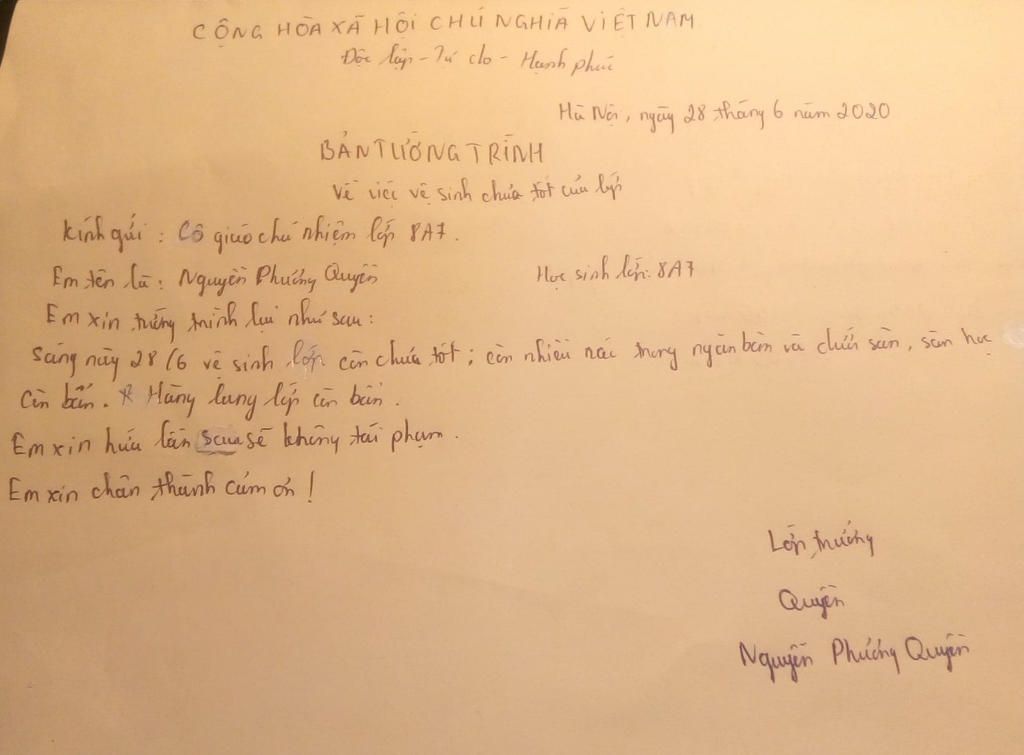 CỘNG HÒA XÃ HỘI CHỦ NGHĨA VIỆT NAM
Độc lập - Tự do - Hạnh phúc
Hà Nội, ngày 28 tháng 6 năm 2020
BẢN TƯỜNG TRÌNH
Về việc vệ sinh chưa tốt của lớp
Kính gửi : Cô giáo chủ nhiệm lớp 8A7.
Em tên là : Nguyễn Phương Quyên Học sinh lớp: 8A7
Em xin tường trình lại như sau :
Sáng nay 28/6 vệ sinh lớp còn chưa tốt ; còn nhiều rác trong ngăn bàn và dưới sàn, sàn học
còn bẩn. Hàng lang lớp còn bẩn.
Em xin hứa lần sau sẽ không tái phạm.
Em xin chân thành cảm ơn !
Lớp trưởng
Quyên
Nguyễn Phương Quyên